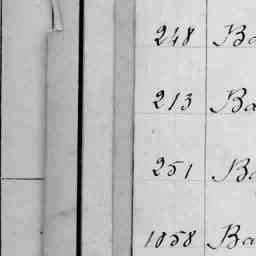 248 Ba
213 Ba
251 Ba
1058 Ba